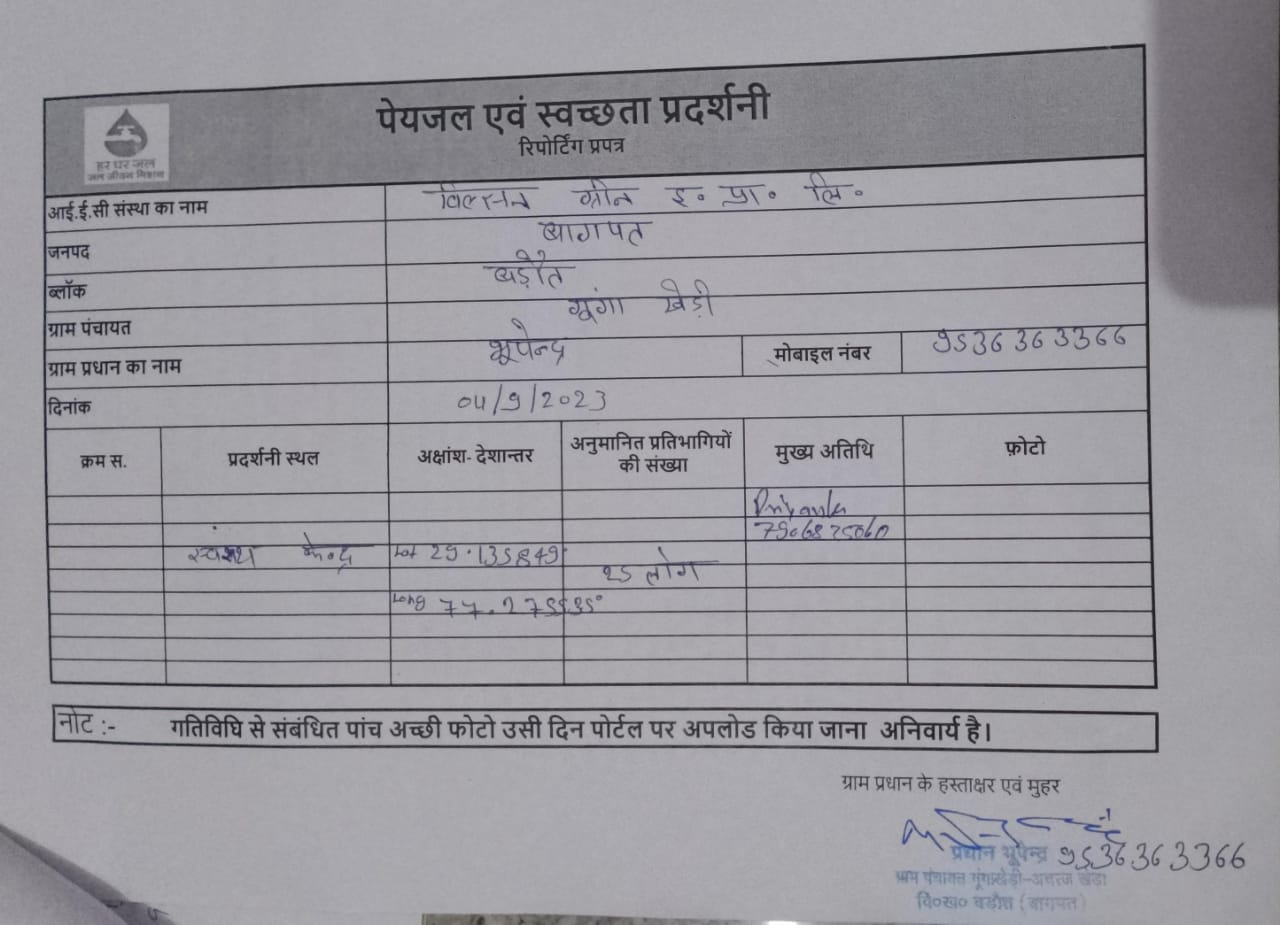 पेयजल एवं स्वच्छता प्रदर्शनी
रिपोर्टिंग प्रपत्र
हर घर जल
जल जीवन मिशन
आई.ई.सी संस्था का नाम विल्सन ग्रीन इ. प्रा. लि.
जनपद बागपत
ब्लॉक बड़ौत
ग्राम पंचायत गूंगा खेड़ी
ग्राम प्रधान का नाम भूपेन्द्र मोबाइल नंबर 9536363366
दिनांक 04/9/2023
क्रम स. प्रदर्शनी स्थल अक्षांश- देशान्तर अनुमानित प्रतिभागियों की संख्या मुख्य अतिथि फ़ोटो
Priyanka
केन्द्र Lat 29.135849°
25 लोग
Long
नोट :- गतिविधि से संबंधित पांच अच्छी फोटो उसी दिन पोर्टल पर अपलोड किया जाना अनिवार्य है।
ग्राम प्रधान के हस्ताक्षर एवं मुहर
प्रधान भूपेन्द्र 9536363366
ग्राम पंचायत
वि०ख० बड़ौत (बागपत)